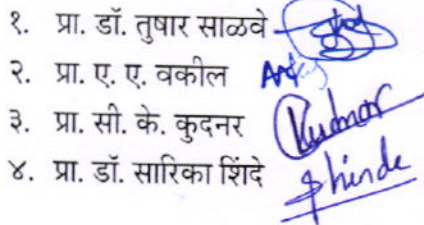 १. प्रा. डॉ. तुषार साळवे
२. प्रा. ए. ए. वकील
३. प्रा. सी. के. कुदनर Kudnar
४. प्रा. डॉ. सारिका शिंदे Shinde